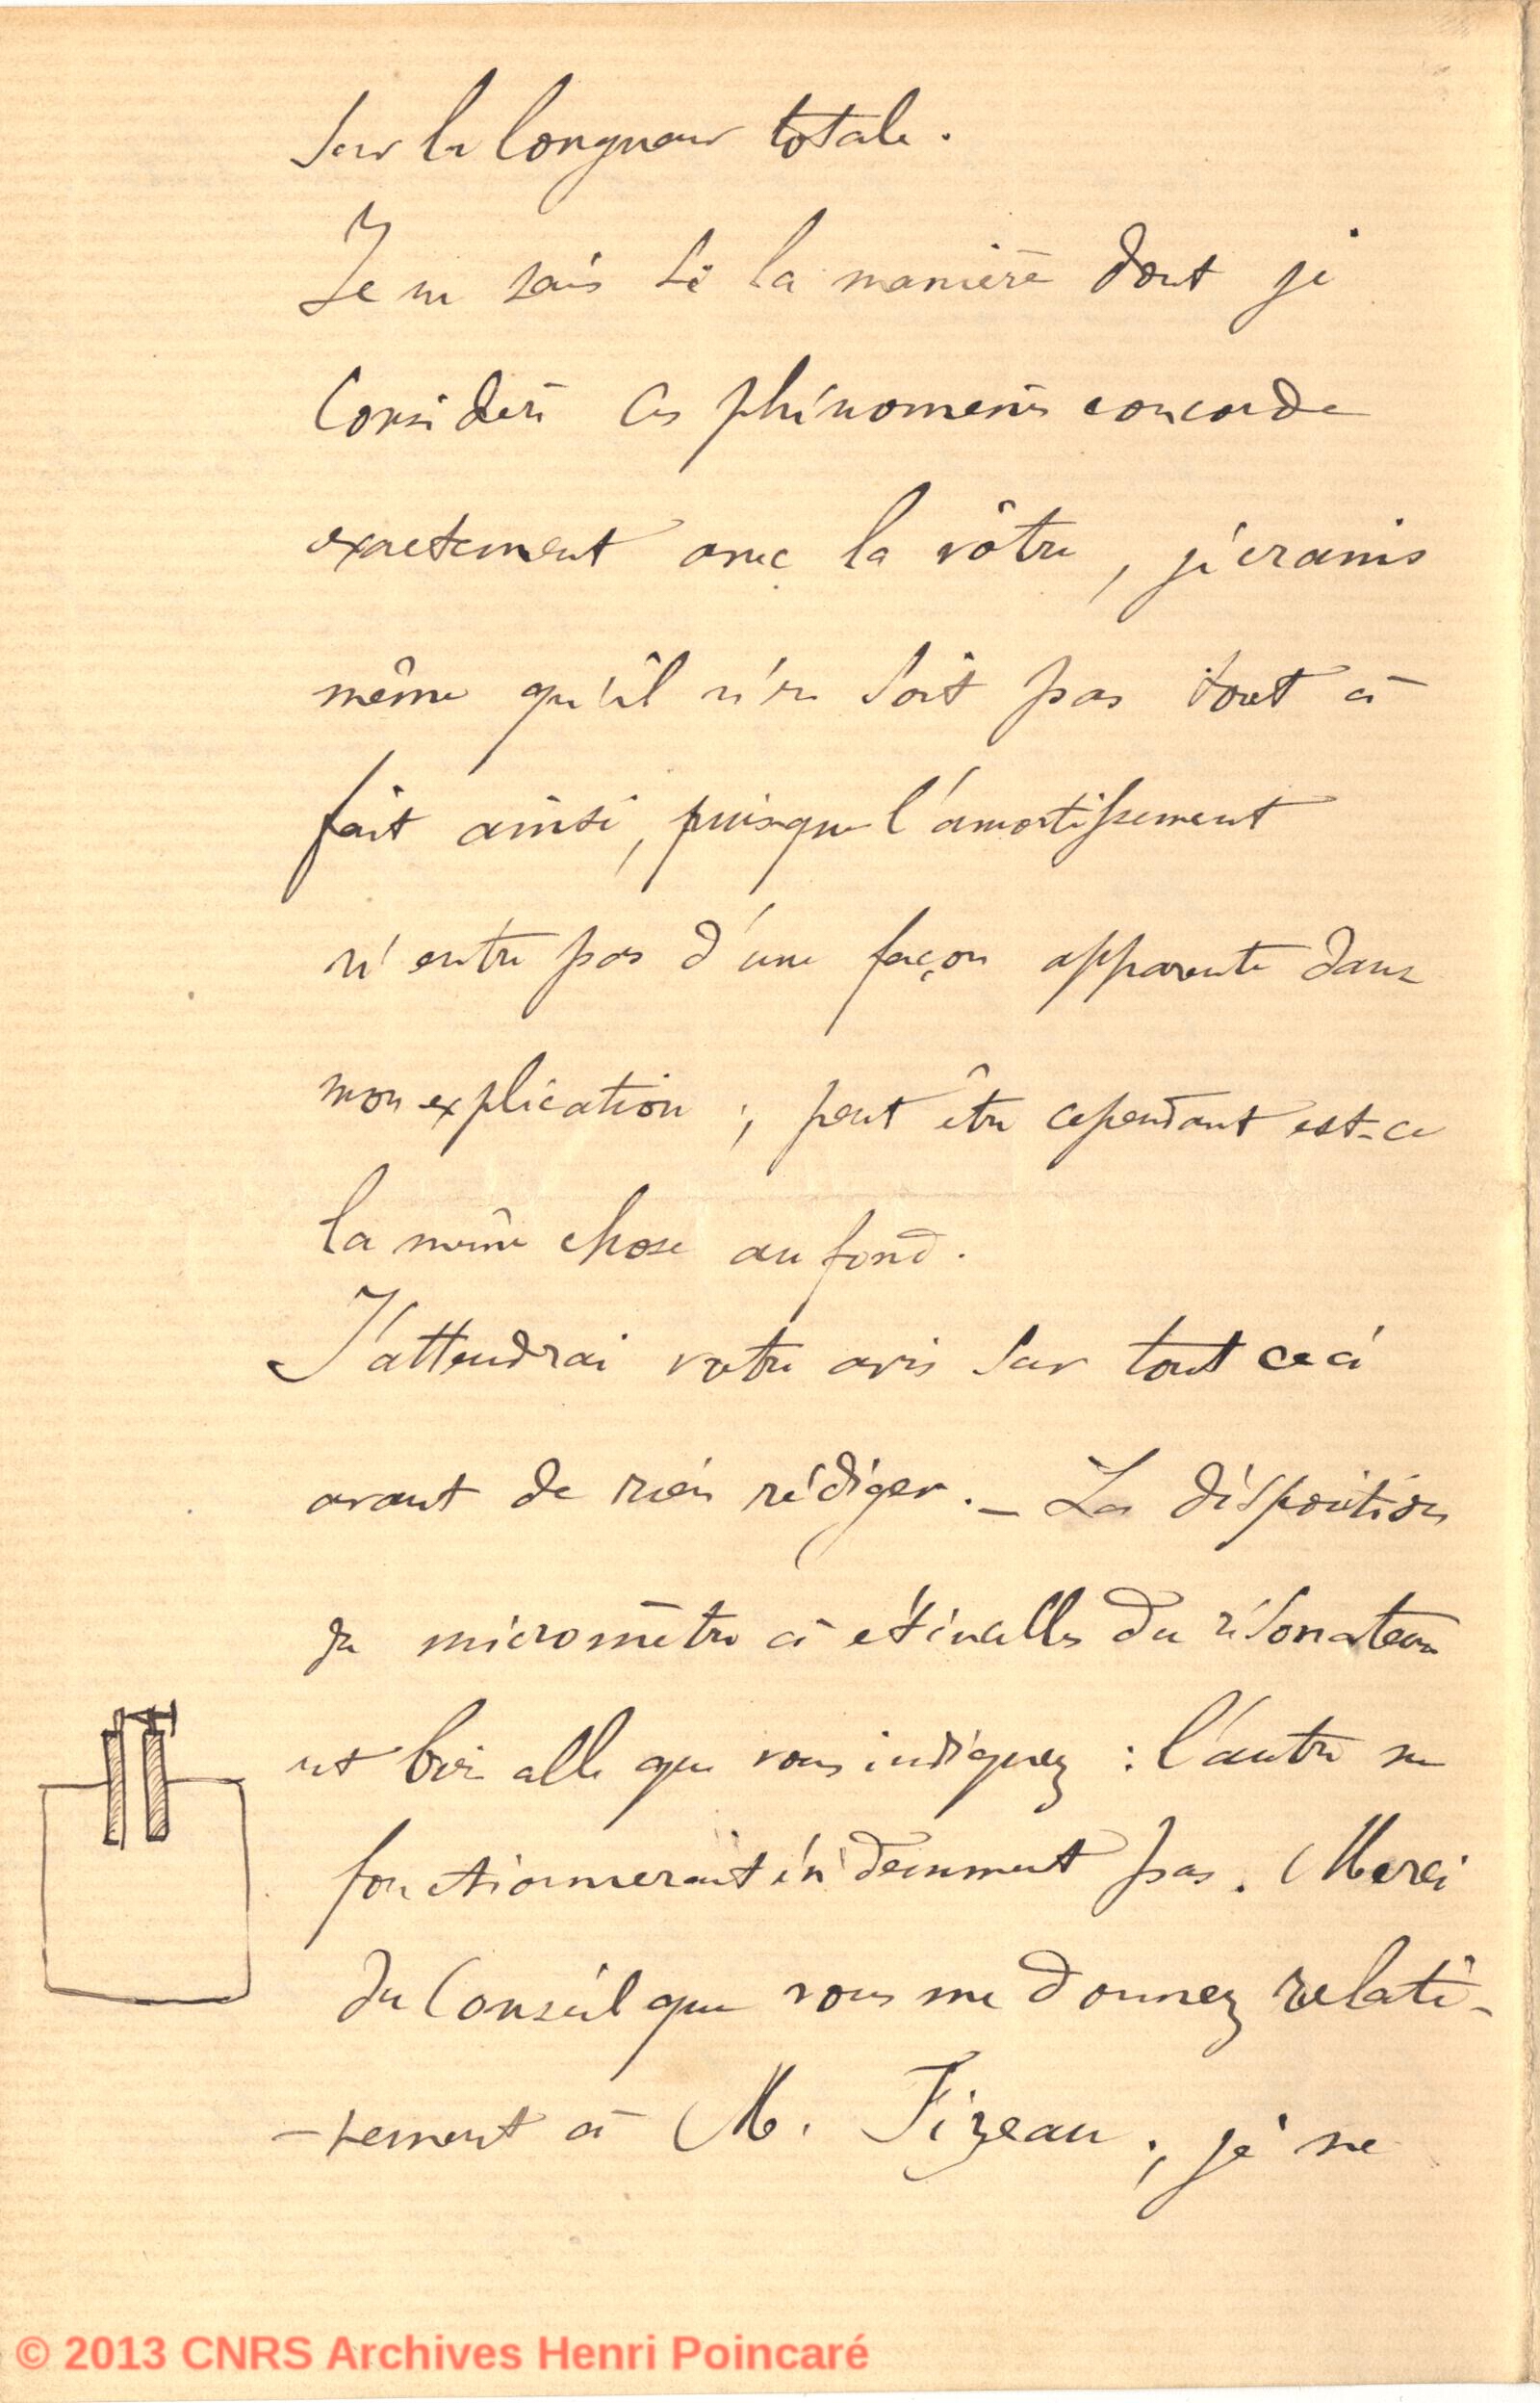 sur la longueur totale.
Je ne sais si la manière dont je
considère ces phénomènes concorde
exactement avec la vôtre, je crains
même qu'il n'en soit pas tout à
fait ainsi, puisque l'amortissement
n'entre pas d'une façon apparente dans
mon explication ; peut être cependant est-ce
la même chose au fond.
J'attendrai votre avis sur tout ceci
avant de rien rédiger. – La disposition
du micromètre à étincelles du résonateur
est bien celle que vous indiquez : l'autre ne
fonctionnerait évidemment pas. Merci
du conseil que vous me donnez relati-
-vement à M. Fizeau ; je ne
© 2013 CNRS Archives Henri Poincaré